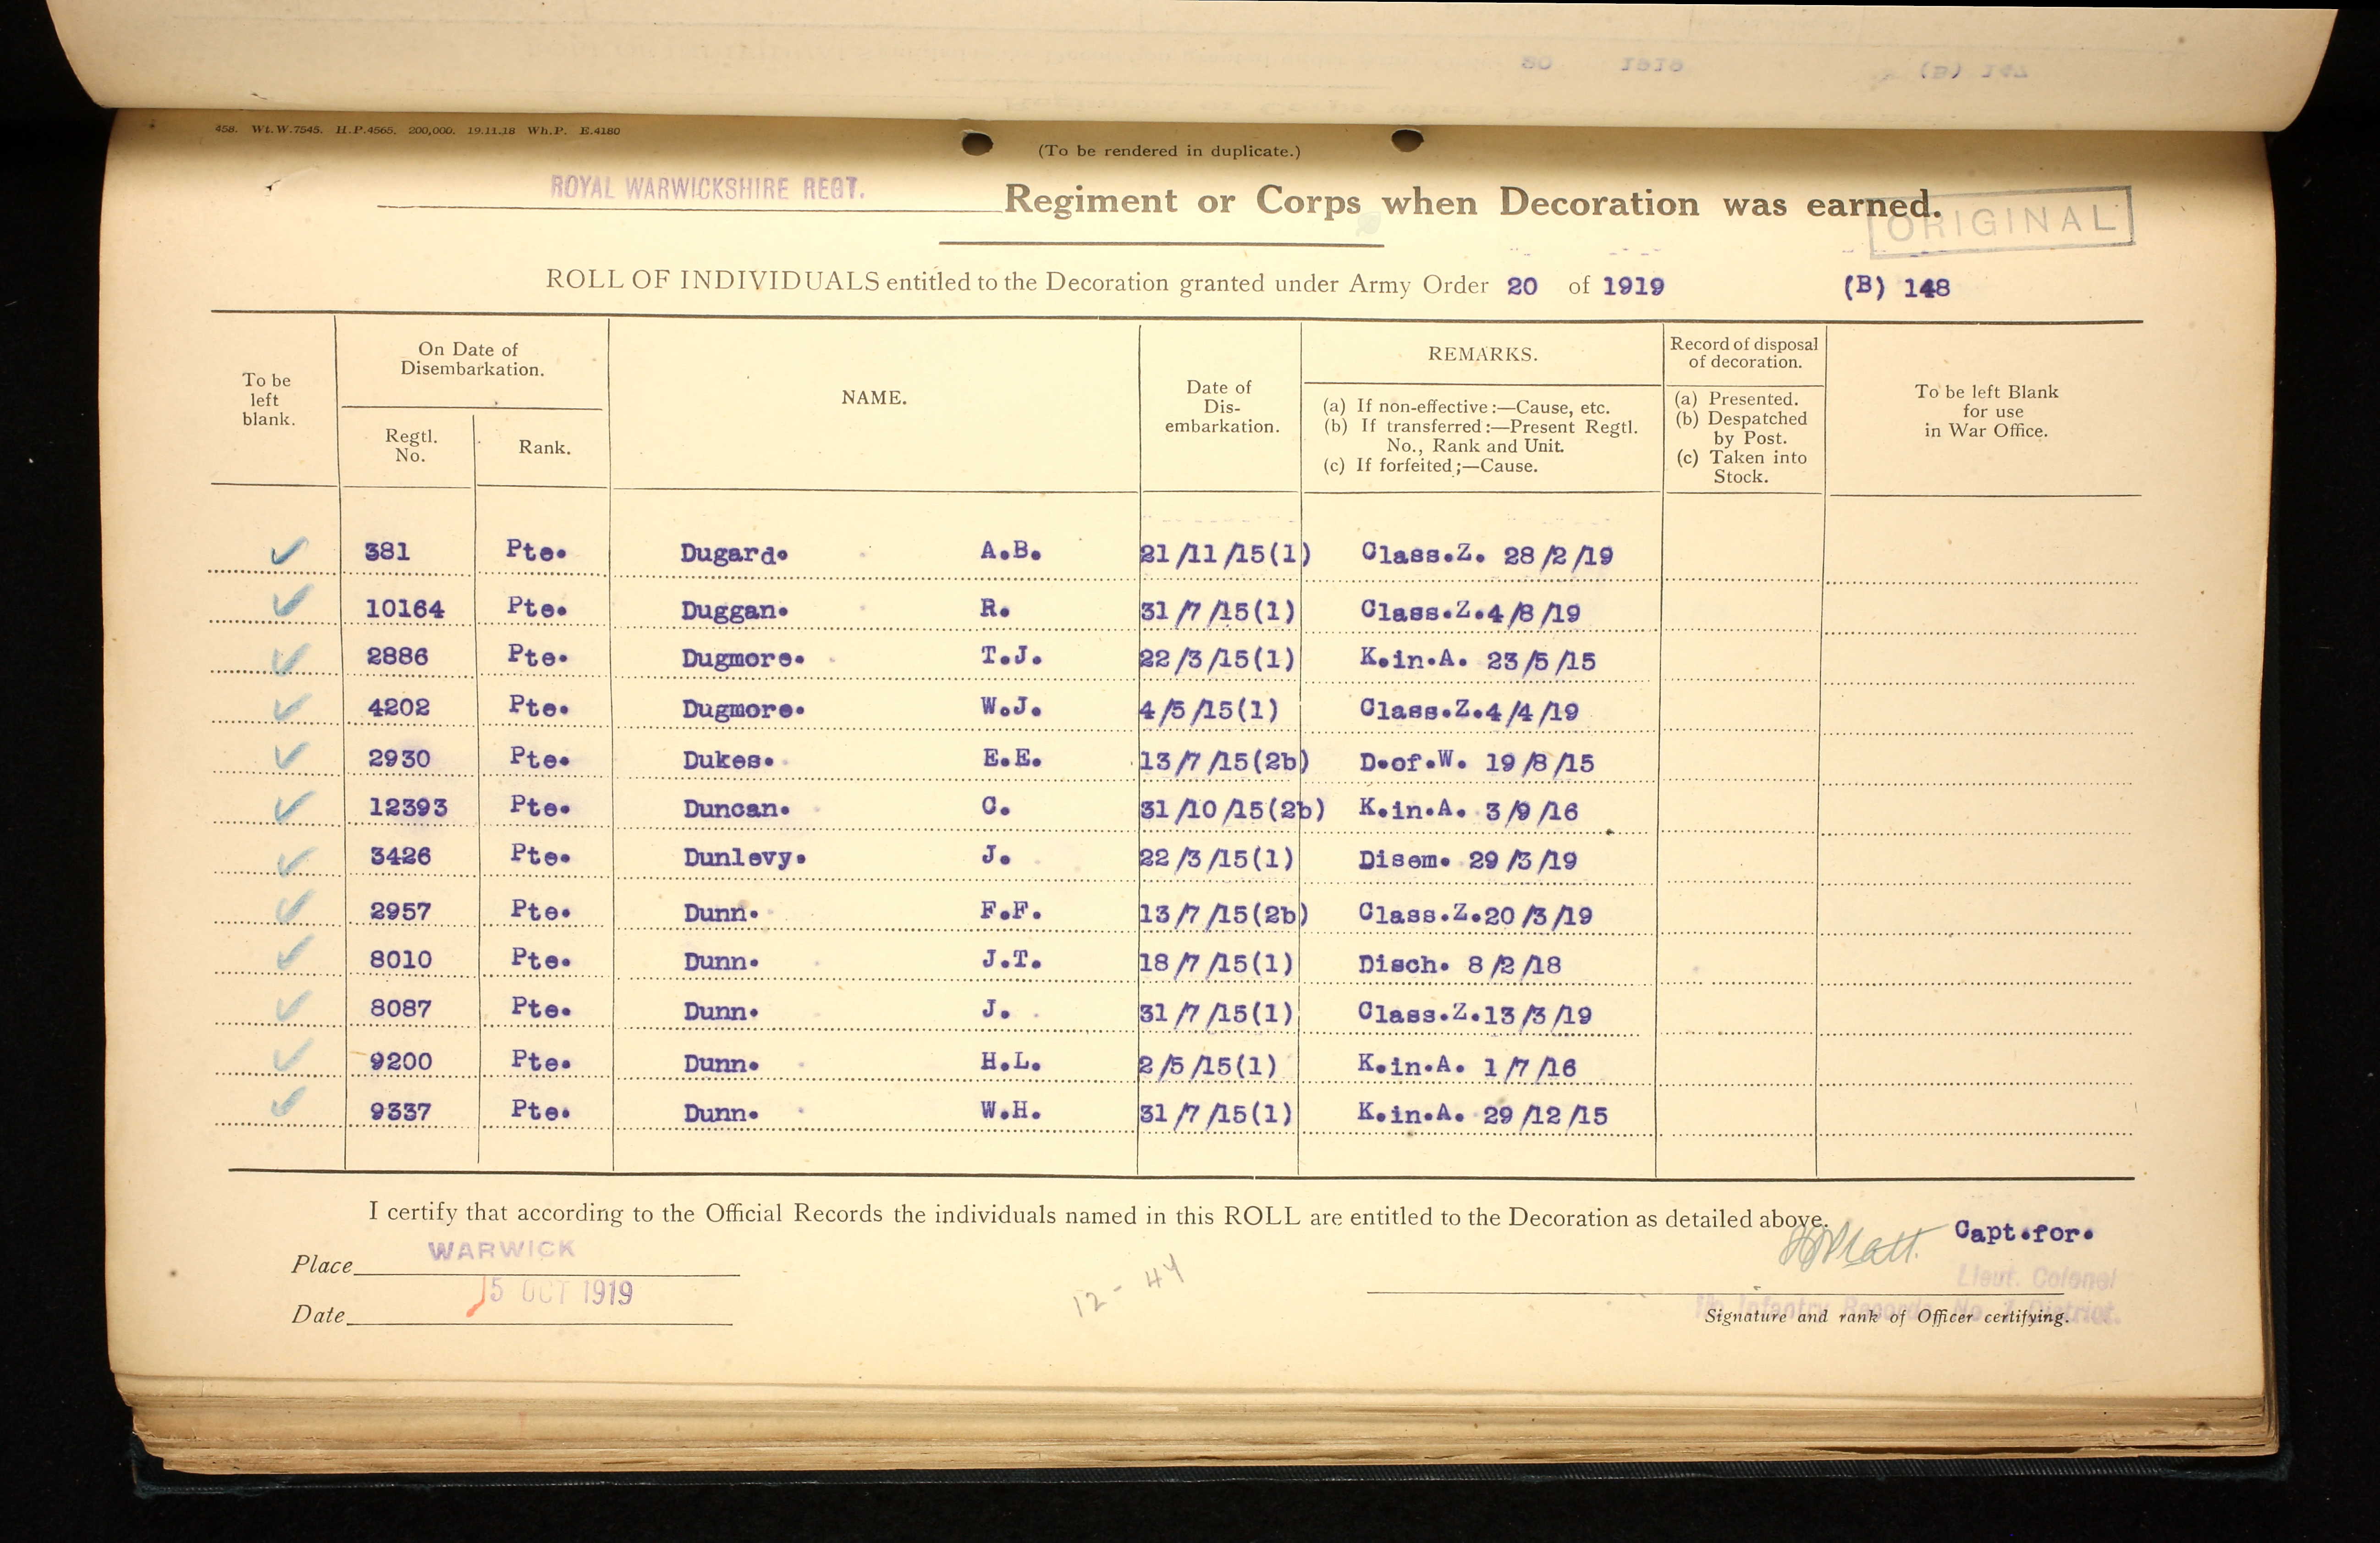 458. Wt.W.7545. H.P.4565. 200,000. 19.11.18 Wh.P. E.4180
(To be rendered in duplicate.)
ROYAL WARWICKSHIRE REGT. Regiment or Corps when Decoration was earned.
ORIGINAL
ROLL OF INDIVIDUALS entitled to the Decoration granted under Army Order 20 of 1919 (B) 148
To be
left
blank.
On Date of
Disembarkation.
Regtl.
No.
Rank.
NAME.
Date of
Dis-
embarkation.
REMARKS.
(a) If non-effective:—Cause, etc.
(b) If transferred:—Present Regtl.
No., Rank and Unit.
(c) If forfeited;—Cause.
Record of disposal
of decoration.
(a) Presented.
(b) Despatched
by Post.
(c) Taken into
Stock.
To be left Blank
for use
in War Office.
381 Pte. Dugard. A.B. 21/11/15(1) Class.Z. 28/2/19
10164 Pte. Duggan. R. 31/7/15(1) Class.Z.4/8/19
2886 Pte. Dugmore. T.J. 22/3/15(1) K.in.A. 23/5/15
4202 Pte. Dugmore. W.J. 4/5/15(1) Class.Z.4/4/19
2930 Pte. Dukes. E.E. 13/7/15(2b) D.of.W. 19/8/15
12393 Pte. Duncan. C. 31/10/15(2b) K.in.A. 3/9/16
3426 Pte. Dunlevy. J. 22/3/15(1) Disem. 29/3/19
2957 Pte. Dunn. F.F. 13/7/15(2b) Class.Z.20/3/19
8010 Pte. Dunn. J.T. 18/7/15(1) Disch. 8/2/18
8087 Pte. Dunn. J. 31/7/15(1) Class.Z.13/3/19
9200 Pte. Dunn. H.L. 2/5/15(1) K.in.A. 1/7/16
9337 Pte. Dunn. W.H. 31/7/15(1) K.in.A. 29/12/15
I certify that according to the Official Records the individuals named in this ROLL are entitled to the Decoration as detailed above.
Capt.for.
Place WARWICK
Lieut. Colonel
Date 15 OCT 1919
12-44
i/c Infantry Records, No. 7 District.
Signature and rank of Officer certifying.